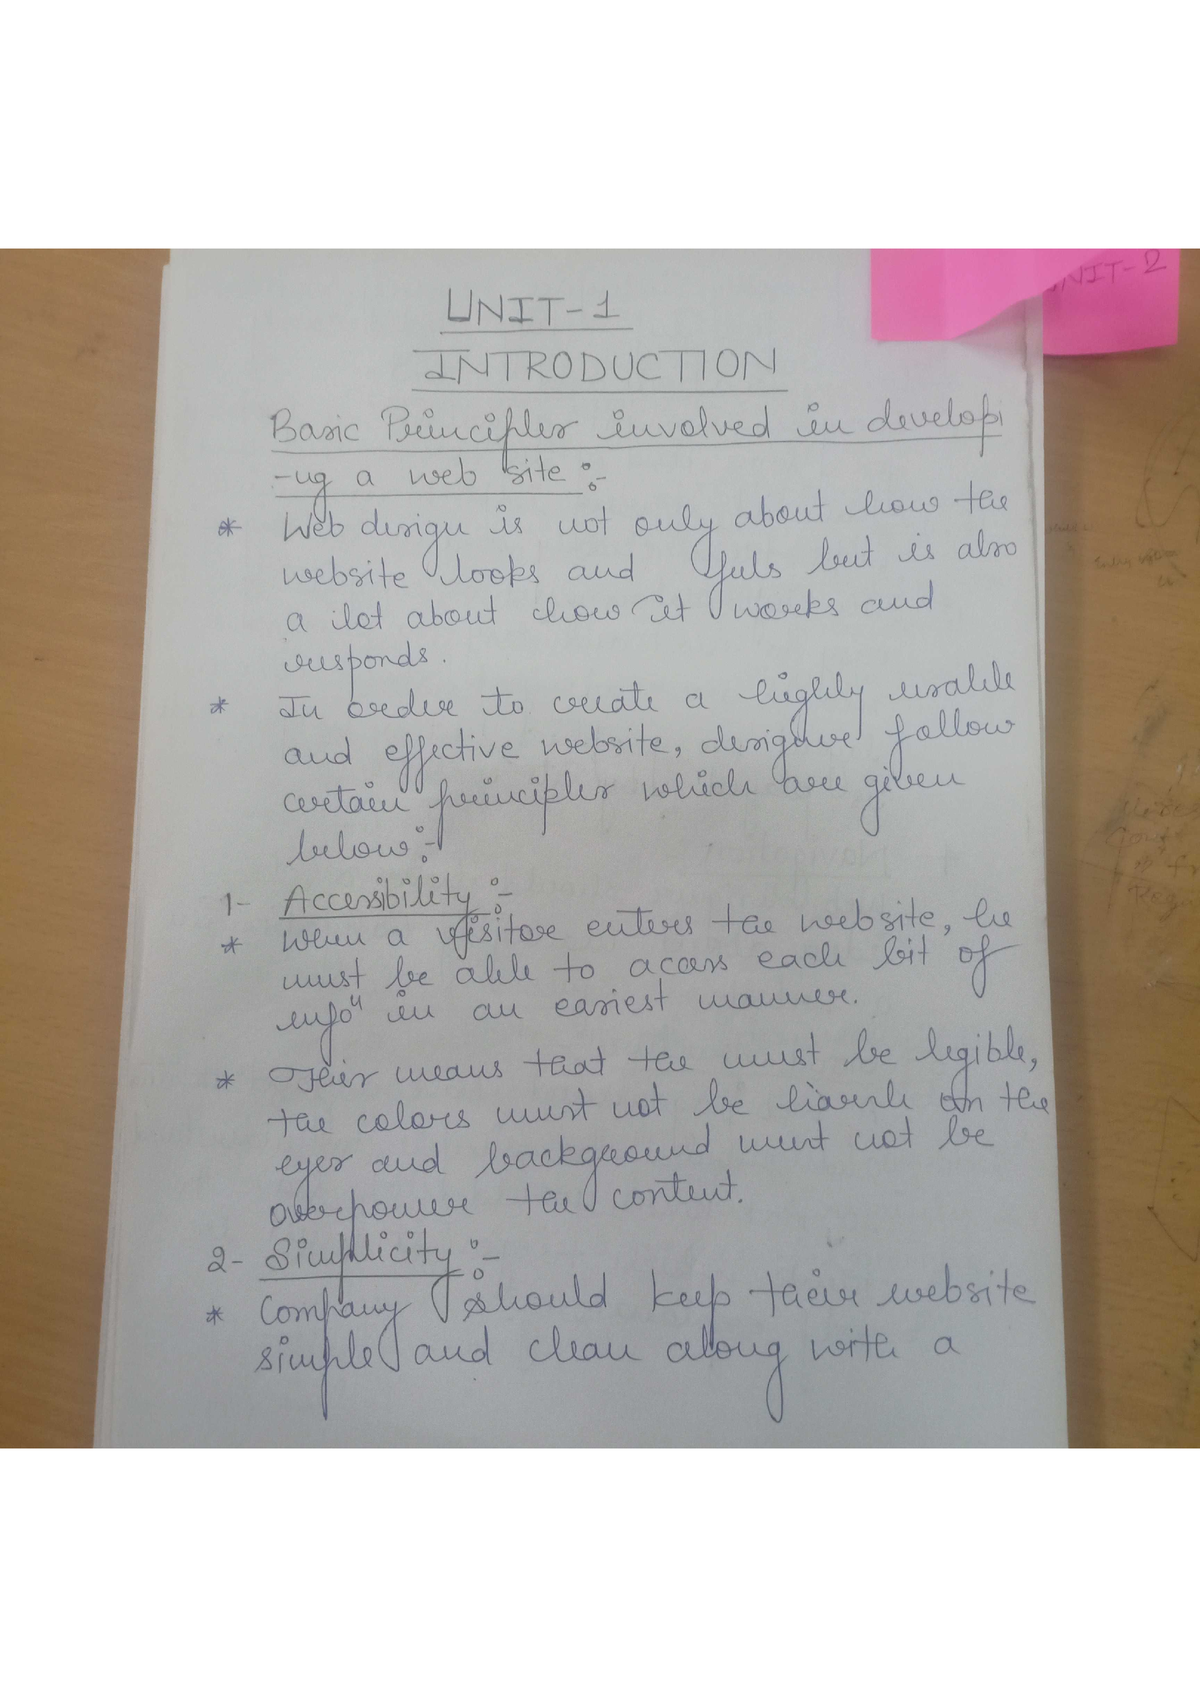 UNIT-1
INTRODUCTION
UNIT-2
Basic Principles involved in developi
-ng a web site :-
* Web design is not only about how the
website looks and feels but is also
a lot about how it works and
responds.
* In order to create a highly usable
and effective website, designer follow
certain principles which are given
below :-
1- Accessibility :-
* When a visitor enters the website, he
must be able to access each bit of
infoⁿ in an easiest manner.
* This means that the must be legible,
the colors must not be harsh on the
eyes and background must not be
overpower the content.
2- Simplicity :-
* Company should keep their website
simple and clean along with a